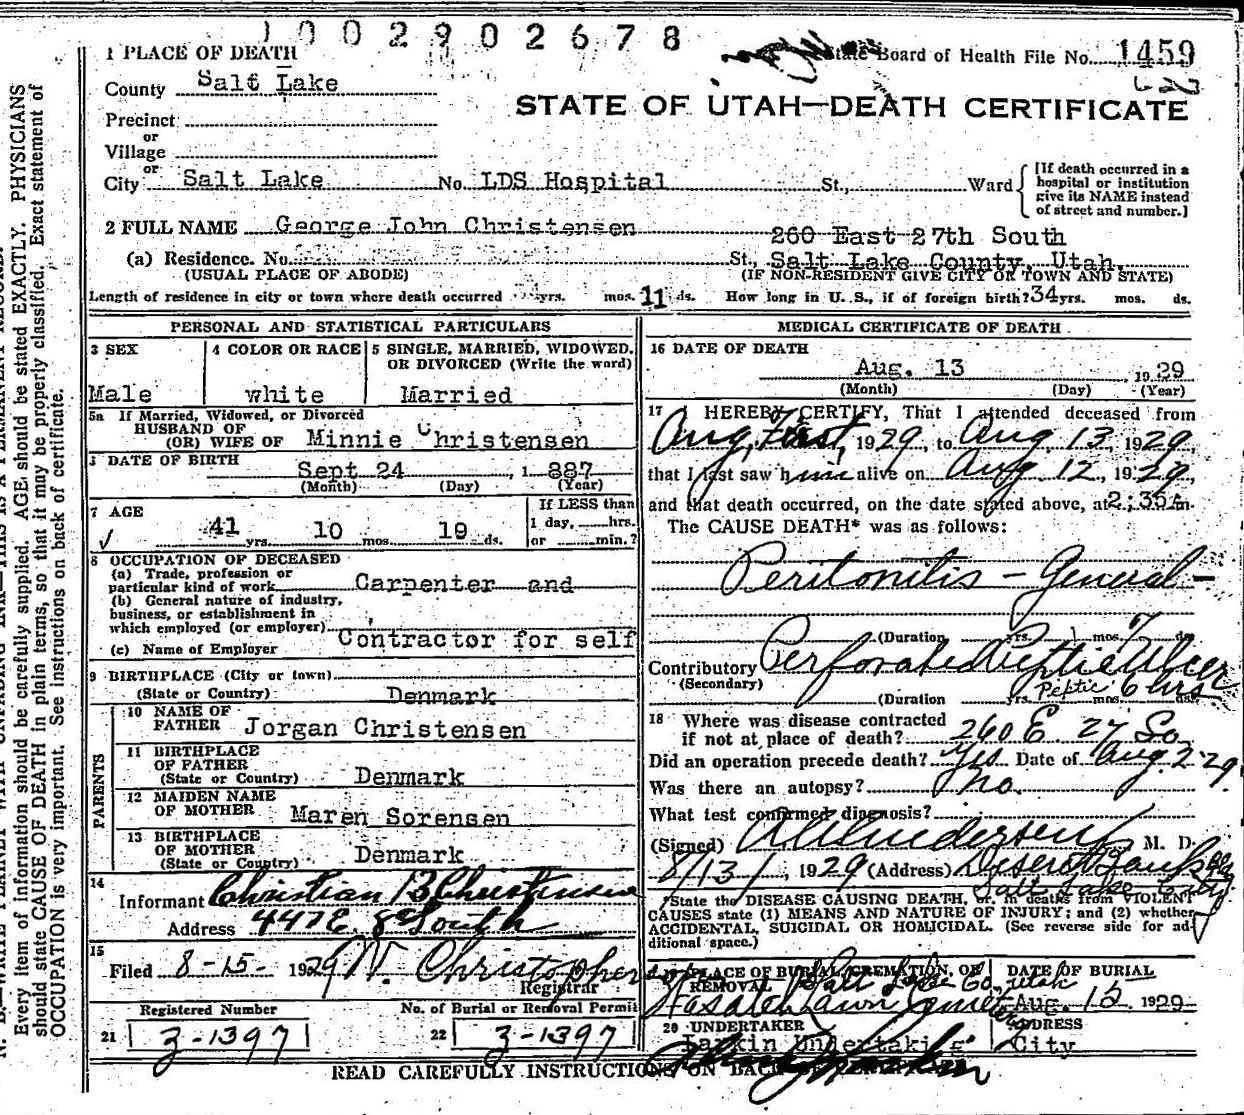 1002902678
State Board of Health File No. 1459
1 PLACE OF DEATH
County Salt Lake
STATE OF UTAH—DEATH CERTIFICATE
Precinct
or
Village
or
City Salt Lake No. LDS Hospital St., Ward
[If death occurred in a hospital or institution give its NAME instead of street and number.]
2 FULL NAME George John Christensen
260 East 27th South
(a) Residence. No. St., Salt Lake County, Utah.
(USUAL PLACE OF ABODE) (IF NON-RESIDENT GIVE CITY OR TOWN AND STATE)
Length of residence in city or town where death occurred yrs. mos. 11 ds. How long in U. S., if of foreign birth? 34 yrs. mos. ds.
PERSONAL AND STATISTICAL PARTICULARS
3 SEX
Male
4 COLOR OR RACE
white
5 SINGLE, MARRIED, WIDOWED, OR DIVORCED (Write the word)
Married
5a If Married, Widowed, or Divorced
HUSBAND OF
(OR) WIFE OF Minnie Christensen
DATE OF BIRTH
Sept 24 1887
(Month) (Day) (Year)
7 AGE
41 yrs. 10 mos. 19 ds.
If LESS than
1 day, hrs.
or min.?
8 OCCUPATION OF DECEASED
(a) Trade, profession or
particular kind of work Carpenter and
(b) General nature of industry,
business, or establishment in
which employed (or employer) Contractor for self
(c) Name of Employer
9 BIRTHPLACE (City or town)
(State or Country) Denmark
PARENTS
10 NAME OF
FATHER Jorgan Christensen
11 BIRTHPLACE
OF FATHER
(State or Country) Denmark
12 MAIDEN NAME
OF MOTHER Maren Sorensen
13 BIRTHPLACE
OF MOTHER
(State or Country) Denmark
14
Informant Christian B Christensen
Address 447 E 8th South
15
Filed 8-15- 1929
Registrar
Registered Number
21 3-1397
No. of Burial or Removal Permit
22 3-1397
MEDICAL CERTIFICATE OF DEATH
16 DATE OF DEATH
Aug. 13 1929
(Month) (Day) (Year)
17 I HEREBY CERTIFY, That I attended deceased from
Aug, First, 1929, to Aug 13 1929,
that I last saw him alive on Aug 12, 1929,
and that death occurred, on the date stated above, at 2:35A m.
The CAUSE DEATH* was as follows:
Peritonitis - General -
(Duration yrs. mos. ds.
Contributory Perforated Peptic Ulcer
(Secondary) Peptic 6 hrs
(Duration yrs. mos. ds.
18 Where was disease contracted
if not at place of death? 260 E 27 So.
Did an operation precede death? Yes Date of Aug 2-29.
Was there an autopsy? No.
What test confirmed diagnosis?
(Signed) M. D.
8/13/, 1929 (Address) Deseret Bank Bldg
Salt Lake City
*State the DISEASE CAUSING DEATH, or, in deaths from VIOLENT
CAUSES state (1) MEANS AND NATURE OF INJURY; and (2) whether
ACCIDENTAL, SUICIDAL OR HOMICIDAL. (See reverse side for ad-
ditional space.)
19 PLACE OF BURIAL, CREMATION, OR
REMOVAL Salt Lake Co, Utah
Wasatch Lawn Cemetery
DATE OF BURIAL
Aug. 15 1929
20 UNDERTAKER
Larkin Undertaking
ADDRESS
City
READ CAREFULLY INSTRUCTIONS ON BACK
Every item of information should be carefully supplied. AGE should be stated EXACTLY. PHYSICIANS
should state CAUSE OF DEATH in plain terms, so that it may be properly classified. Exact statement of
OCCUPATION is very important. See instructions on back of certificate.